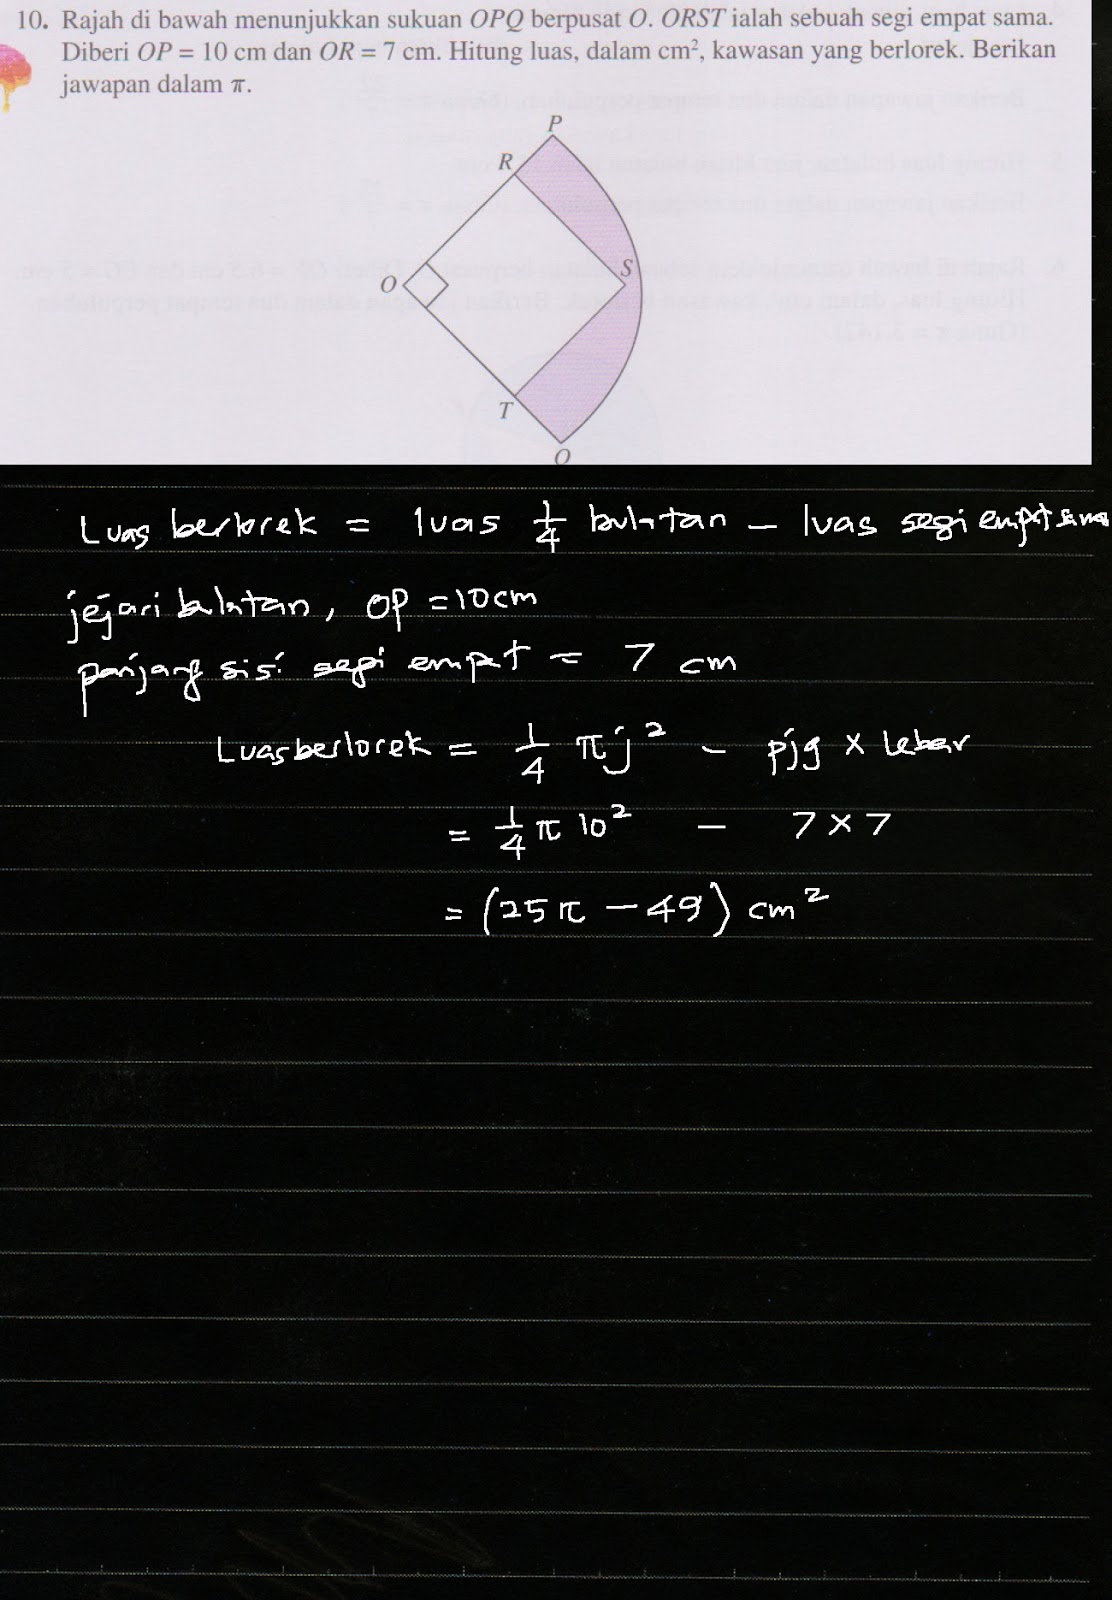 10. Rajah di bawah menunjukkan sukuan OPQ berpusat O. ORST ialah sebuah segi empat sama.
Diberi OP = 10 cm dan OR = 7 cm. Hitung luas, dalam cm², kawasan yang berlorek. Berikan
jawapan dalam π.
P
R
S
O
T
Q
Luas berlorek = luas 1/4 bulatan - luas segi empat sama
jejari bulatan, OP = 10cm
panjang sisi segi empat = 7 cm
Luas berlorek = 1/4 πj² - pjg x lebar
= 1/4 π 10² - 7 x 7
= (25π - 49) cm²